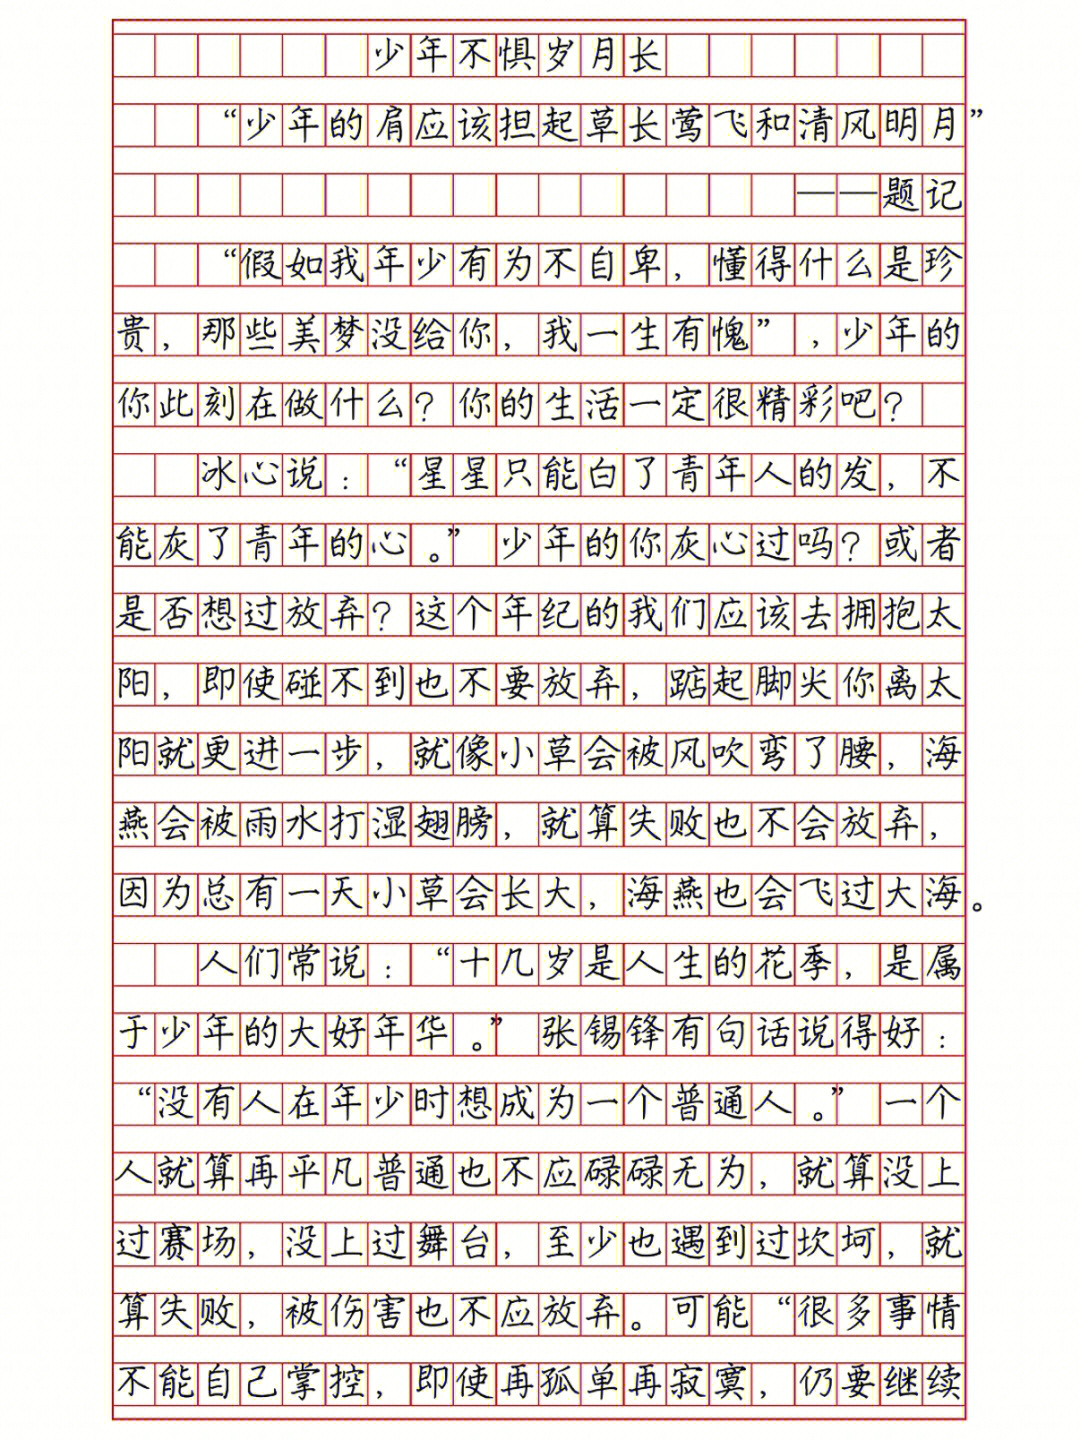 少年不惧岁月长
“少年的肩应该担起草长莺飞和清风明月”
——题记
“假如我年少有为不自卑，懂得什么是珍
贵，那些美梦没给你，我一生有愧”，少年的
你此刻在做什么？你的生活一定很精彩吧？
冰心说：“星星只能白了青年人的发，不
能灰了青年的心。”少年的你灰心过吗？或者
是否想过放弃？这个年纪的我们应该去拥抱太
阳，即使碰不到也不要放弃，踮起脚尖你离太
阳就更进一步，就像小草会被风吹弯了腰，海
燕会被雨水打湿翅膀，就算失败也不会放弃，
因为总有一天小草会长大，海燕也会飞过大海。
人们常说：“十几岁是人生的花季，是属
于少年的大好年华。”张锡锋有句话说得好：
“没有人在年少时想成为一个普通人。”一个
人就算再平凡普通也不应碌碌无为，就算没上
过赛场，没上过舞台，至少也遇到过坎坷，就
算失败，被伤害也不应放弃。可能“很多事情
不能自己掌控，即使再孤单再寂寞，仍要继续